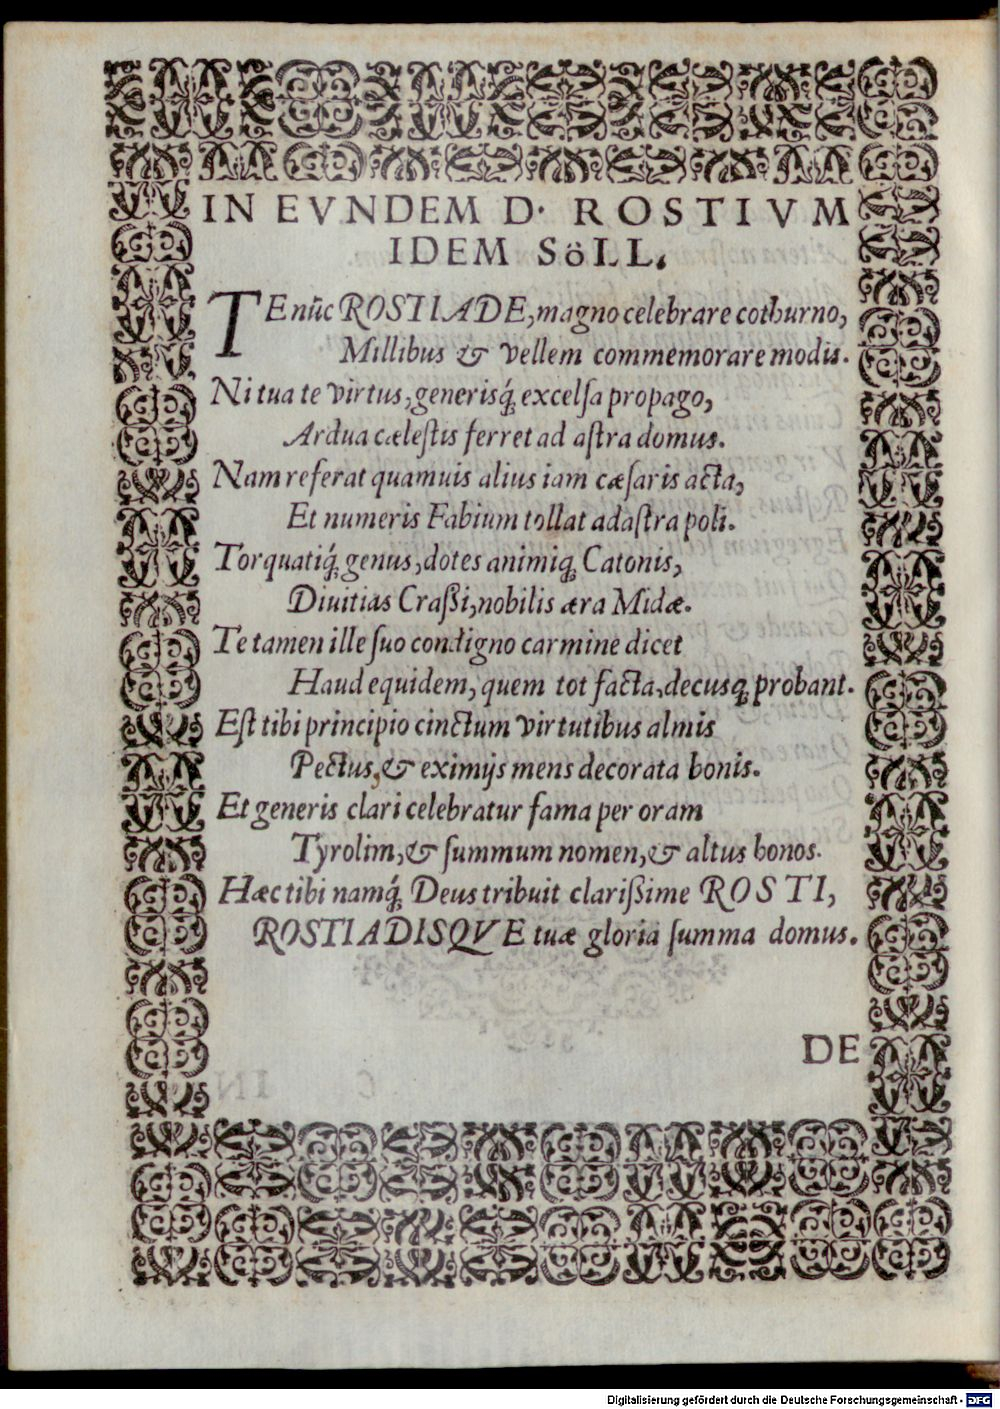 IN EVNDEM D· ROSTIVM
IDEM SöLL.
TE nūc ROSTIADE, magno celebrare cothurno,
Millibus & vellem commemorare modis.
Ni tua te virtus, generisq́; excelſa propago,
Ardua cæleſtis ferret ad aſtra domus.
Nam referat quamuis alius iam cæſaris acta,
Et numeris Fabium tollat ad aſtra poli.
Torquatiq́; genus, dotes animiq; Catonis,
Diuitias Craßi, nobilis æra Midæ.
Te tamen ille ſuo condigno carmine dicet
Haud equidem, quem tot facta, decusq; probant.
Eſt tibi principio cinctum virtutibus almis
Pectus, & eximijs mens decorata bonis.
Et generis clari celebratur fama per oram
Tyrolim, & ſummum nomen, & altus honos.
Hæc tibi namq́; Deus tribuit clarißime ROSTI,
ROSTIADISQVE tuæ gloria ſumma domus.
DE
Digitalisierung gefördert durch die Deutsche Forschungsgemeinschaft - DFG